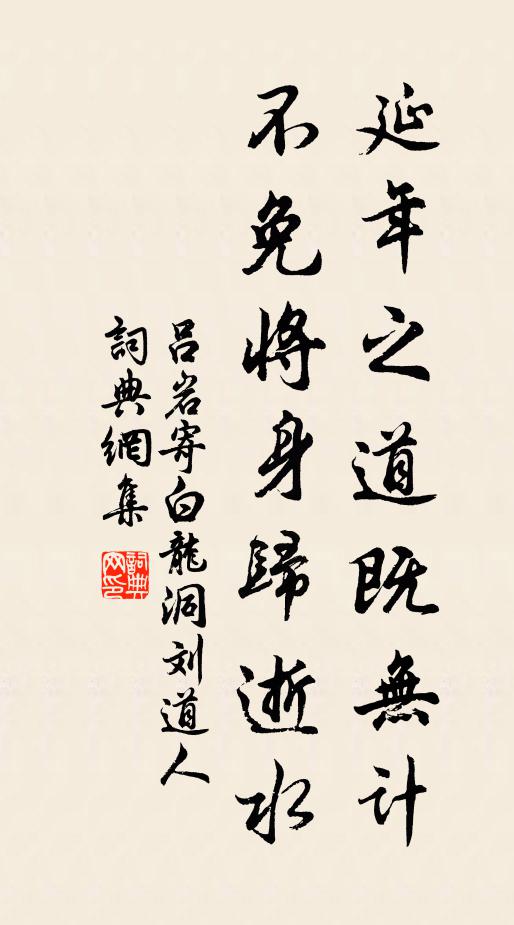 延年之道既無計
不免將身歸逝水
吕岩寄白龍洞刘道人
詞典網集
詞典网印